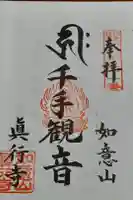 奉拝
如意山
千手観音
眞行寺